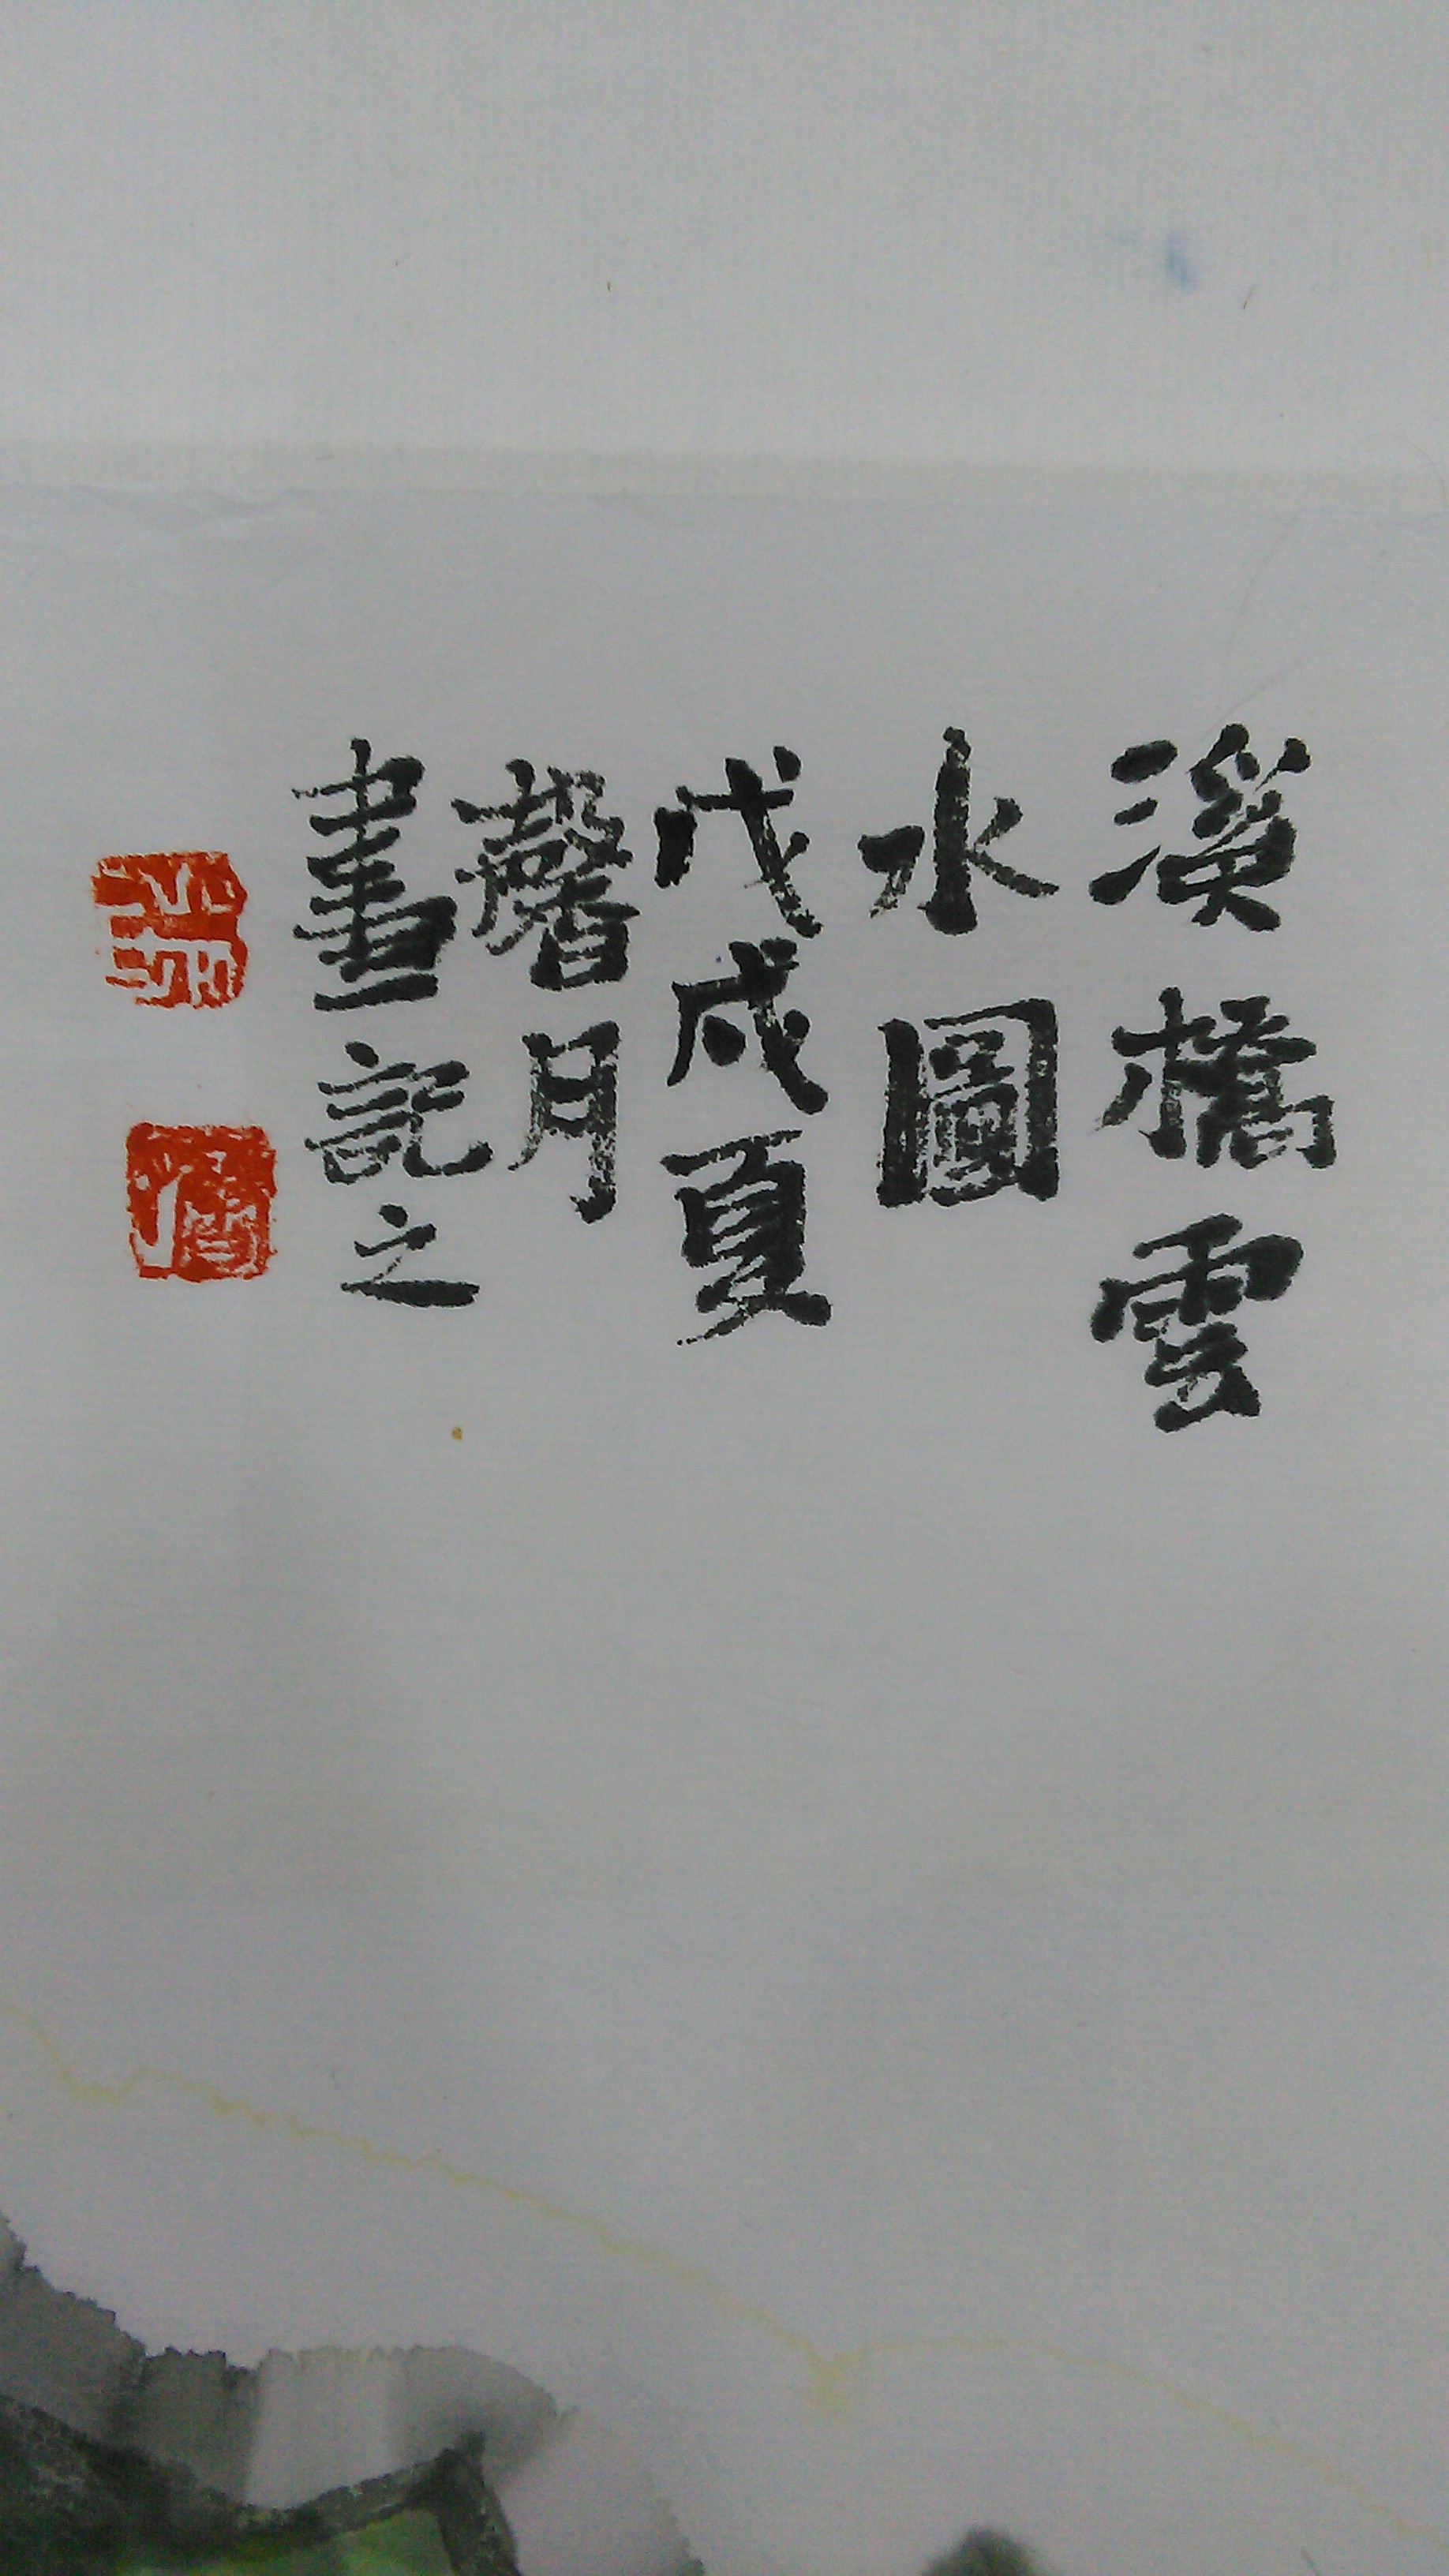 溪橋雲
水圖
戊戌夏
馨月
畫記之